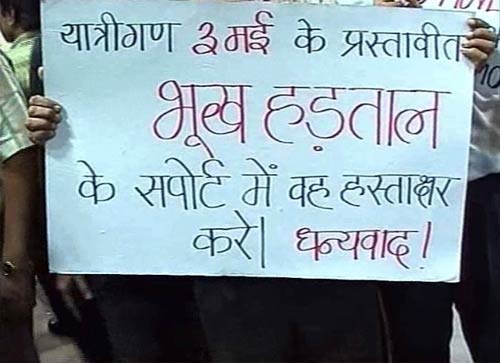 यात्रीगण 3 मई के प्रस्तावीत
भूख हड़ताल
के सपोर्ट में वह हस्ताक्षर
करे| धन्यवाद!